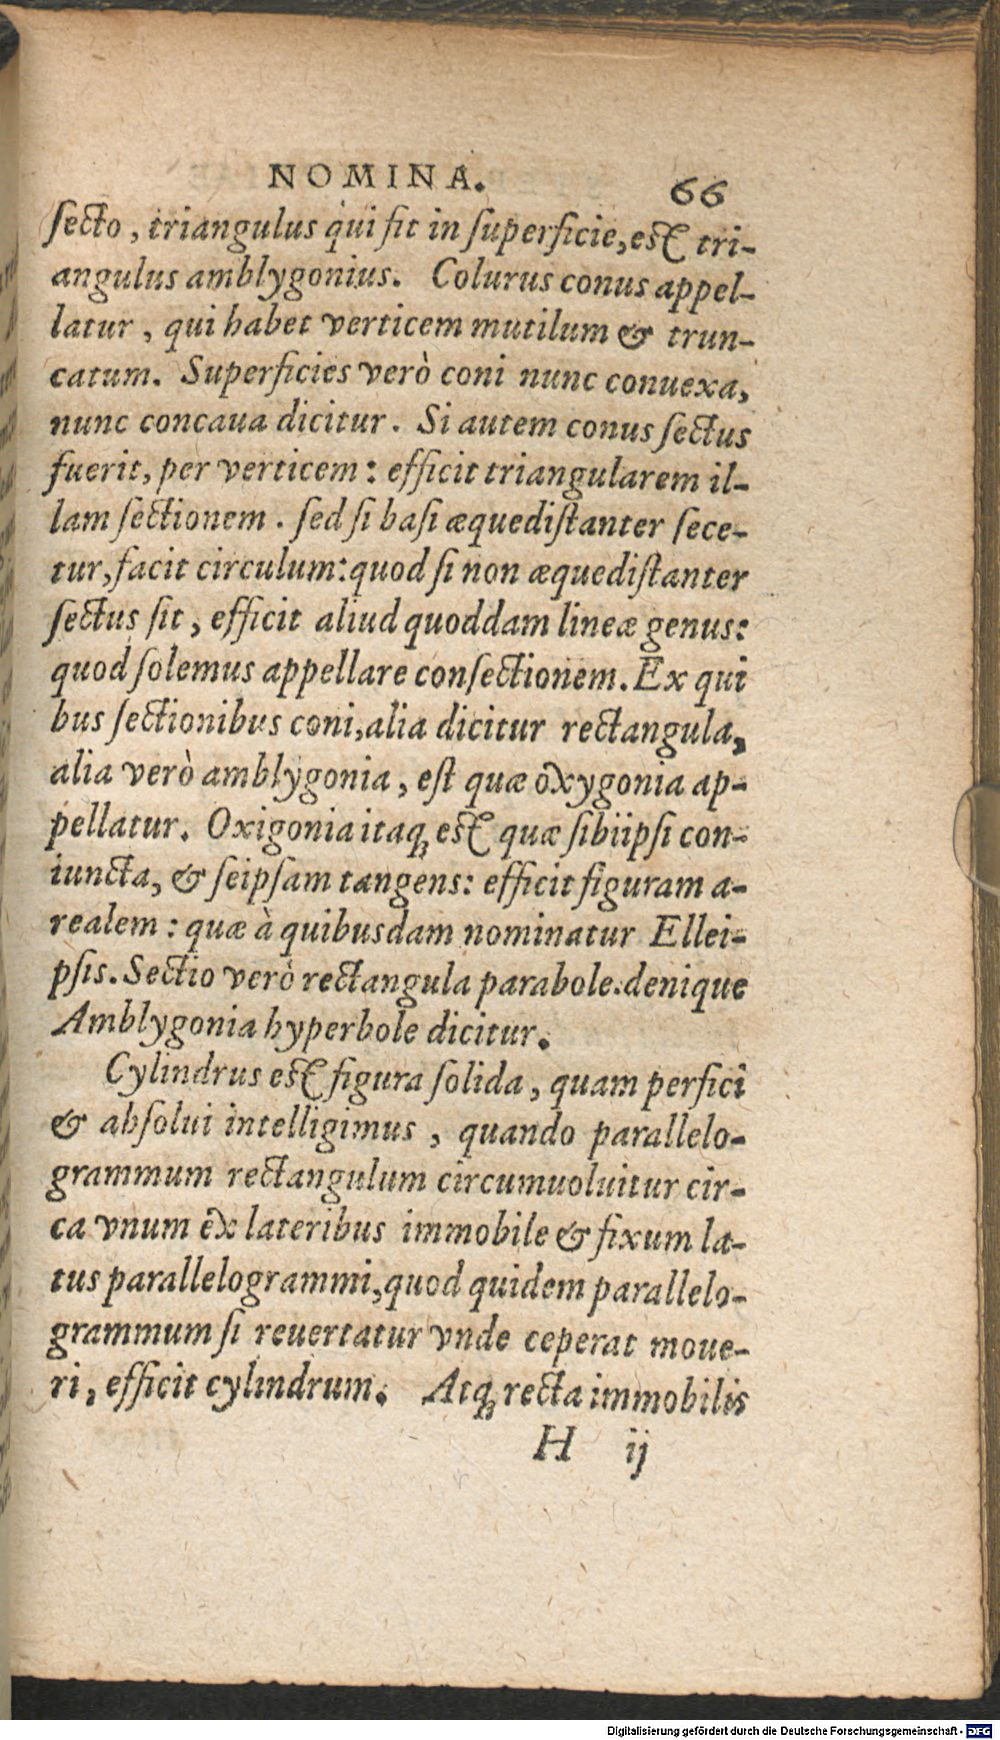 NOMINA. 66
ſecto, triangulus qui fit in ſuperficie, eſt tri-
angulus amblygonius. Colurus conus appel-
latur, qui habet verticem mutilum & trun-
catum. Superficies verò coni nunc conuexa,
nunc concaua dicitur. Si autem conus ſectus
fuerit, per verticem: efficit triangularem il-
lam ſectionem. ſed ſi baſi æquediſtanter ſece-
tur, facit circulum: quod ſi non æquediſtanter
ſectus ſit, efficit aliud quoddam lineæ genus:
quod ſolemus appellare conſectionem. Ex qui
bus ſectionibus coni, alia dicitur rectangula,
alia verò amblygonia, eſt quæ oxygonia ap-
pellatur. Oxigonia itaq; eſt quæ ſibiipſi con-
iuncta, & ſeipſam tangens: efficit figuram a-
realem: quæ à quibusdam nominatur Ellei-
pſis. Sectio verò rectangula parabole. denique
Amblygonia hyperbole dicitur.
Cylindrus eſt figura ſolida, quam perfici
& abſolui intelligimus, quando parallelo-
grammum rectangulum circumuoluitur cir-
ca vnum ex lateribus immobile & fixum la-
tus parallelogrammi, quod quidem parallelo-
grammum ſi reuertatur vnde ceperat moue-
ri, efficit cylindrum. Atq; recta immobilis
H ij
Digitalisierung gefördert durch die Deutsche Forschungsgemeinschaft - DFG